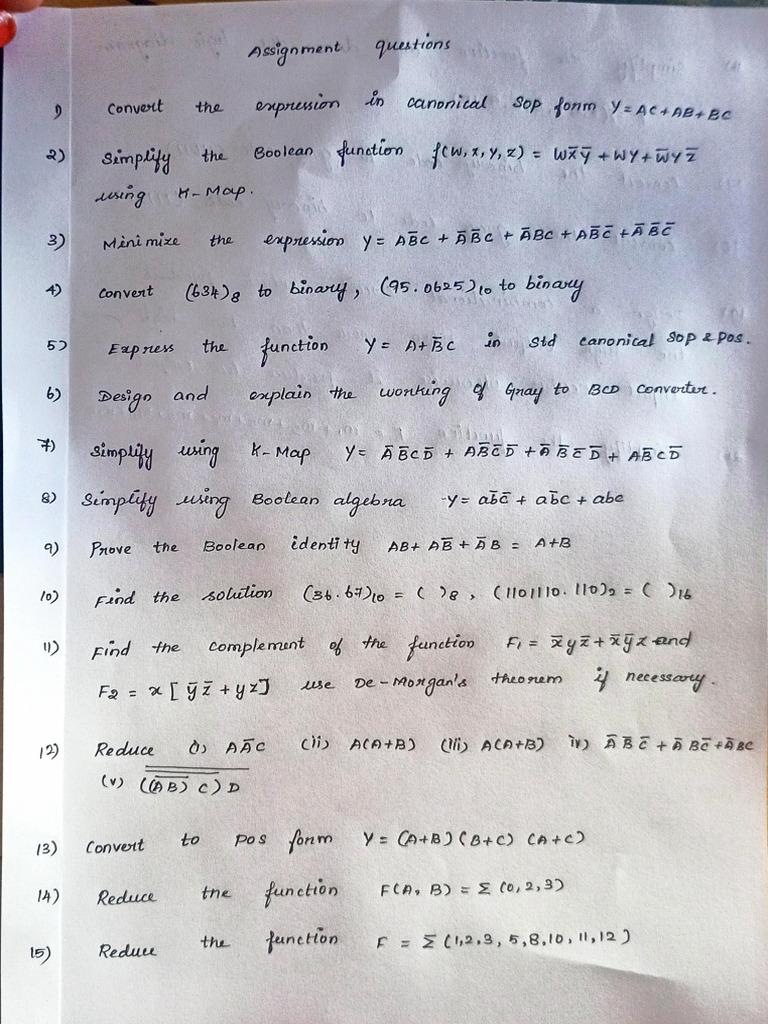 Assignment questions
1) Convert the expression in canonical SOP form Y = AC + AB + BC
2) Simplify the Boolean function f(W, x, y, z) = Wx̄ȳ + WY + w̄yz̄
using K-Map.
3) Minimize the expression Y = AB̄C + ĀB̄C + ĀBC + AB̄C̄ + ĀB̄C̄
4) Convert (634)₈ to binary, (95.0625)₁₀ to binary
5) Express the function Y = A + B̄C in Std canonical SOP & POS.
6) Design and explain the working of Gray to BCD converter.
7) Simplify using K-Map Y = ĀB̄CD̄ + AB̄C̄D̄ + ĀB̄C̄D̄ + AB̄CD̄
8) Simplify using Boolean algebra Y = ab̄c̄ + ab̄c + abc
9) Prove the Boolean identity AB + AB̄ + ĀB = A+B
10) Find the solution (36.67)₁₀ = ( )₈ , (1101110.110)₂ = ( )₁₆
11) Find the complement of the function F₁ = x̄yz̄ + x̄ȳz and
F₂ = x [ȳz̄ + yz] use De-Morgan's theorem if necessary.
12) Reduce i) AĀC (ii) A(A+B) (iii) A(A+B) iv) ĀB̄C̄ + ĀBC̄ + ĀBC
(v) ((AB) C) D
13) Convert to POS form Y = (A+B)(B+C)(A+C)
14) Reduce the function F(A, B) = Σ (0, 2, 3)
15) Reduce the function F = Σ (1,2,3, 5,8,10, 11,12)